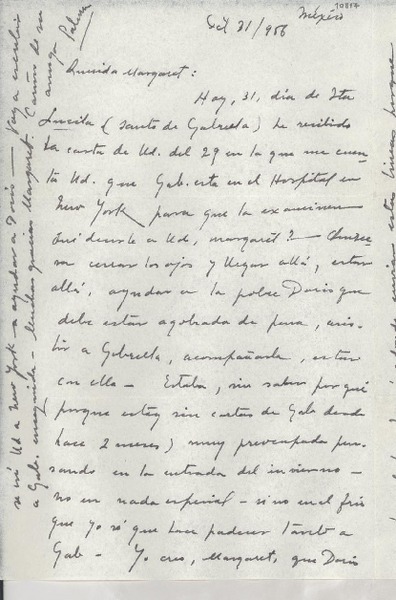 México
10817
Oct 31/956
Querida Margaret:
Hoy, 31, día de Sta
Lucila (Santo de Gabriela) he recibido
la carta de Ud. del 29 en la que me cuen-
ta Ud. que Gab. esta en el Hospital en
New York para que la examinen
Qué decirle a Ud, Margaret?
cerrar los ojos y llegar allá, estar
allá, ayudar a la pobre Doris que
debe estar agobiada de pena, asis-
tir a Gabriela, acompañarla, estar
con ella — Estaba, sin saber por qué
(porque estoy sin cartas de Gab desde
hace 2 meses) muy preocupada pen-
sando en la entrada del invierno —
no en nada especial — sino en el frío
que yo sé que hace padecer tanto a
Gab — Yo creo, Margaret, que Doris
Ud a New York a ayudar a Doris — Voy a escribir
a Gab. enseguida — Muchas gracias Margaret. Cariños de su
amiga Palma
estas líneas porque